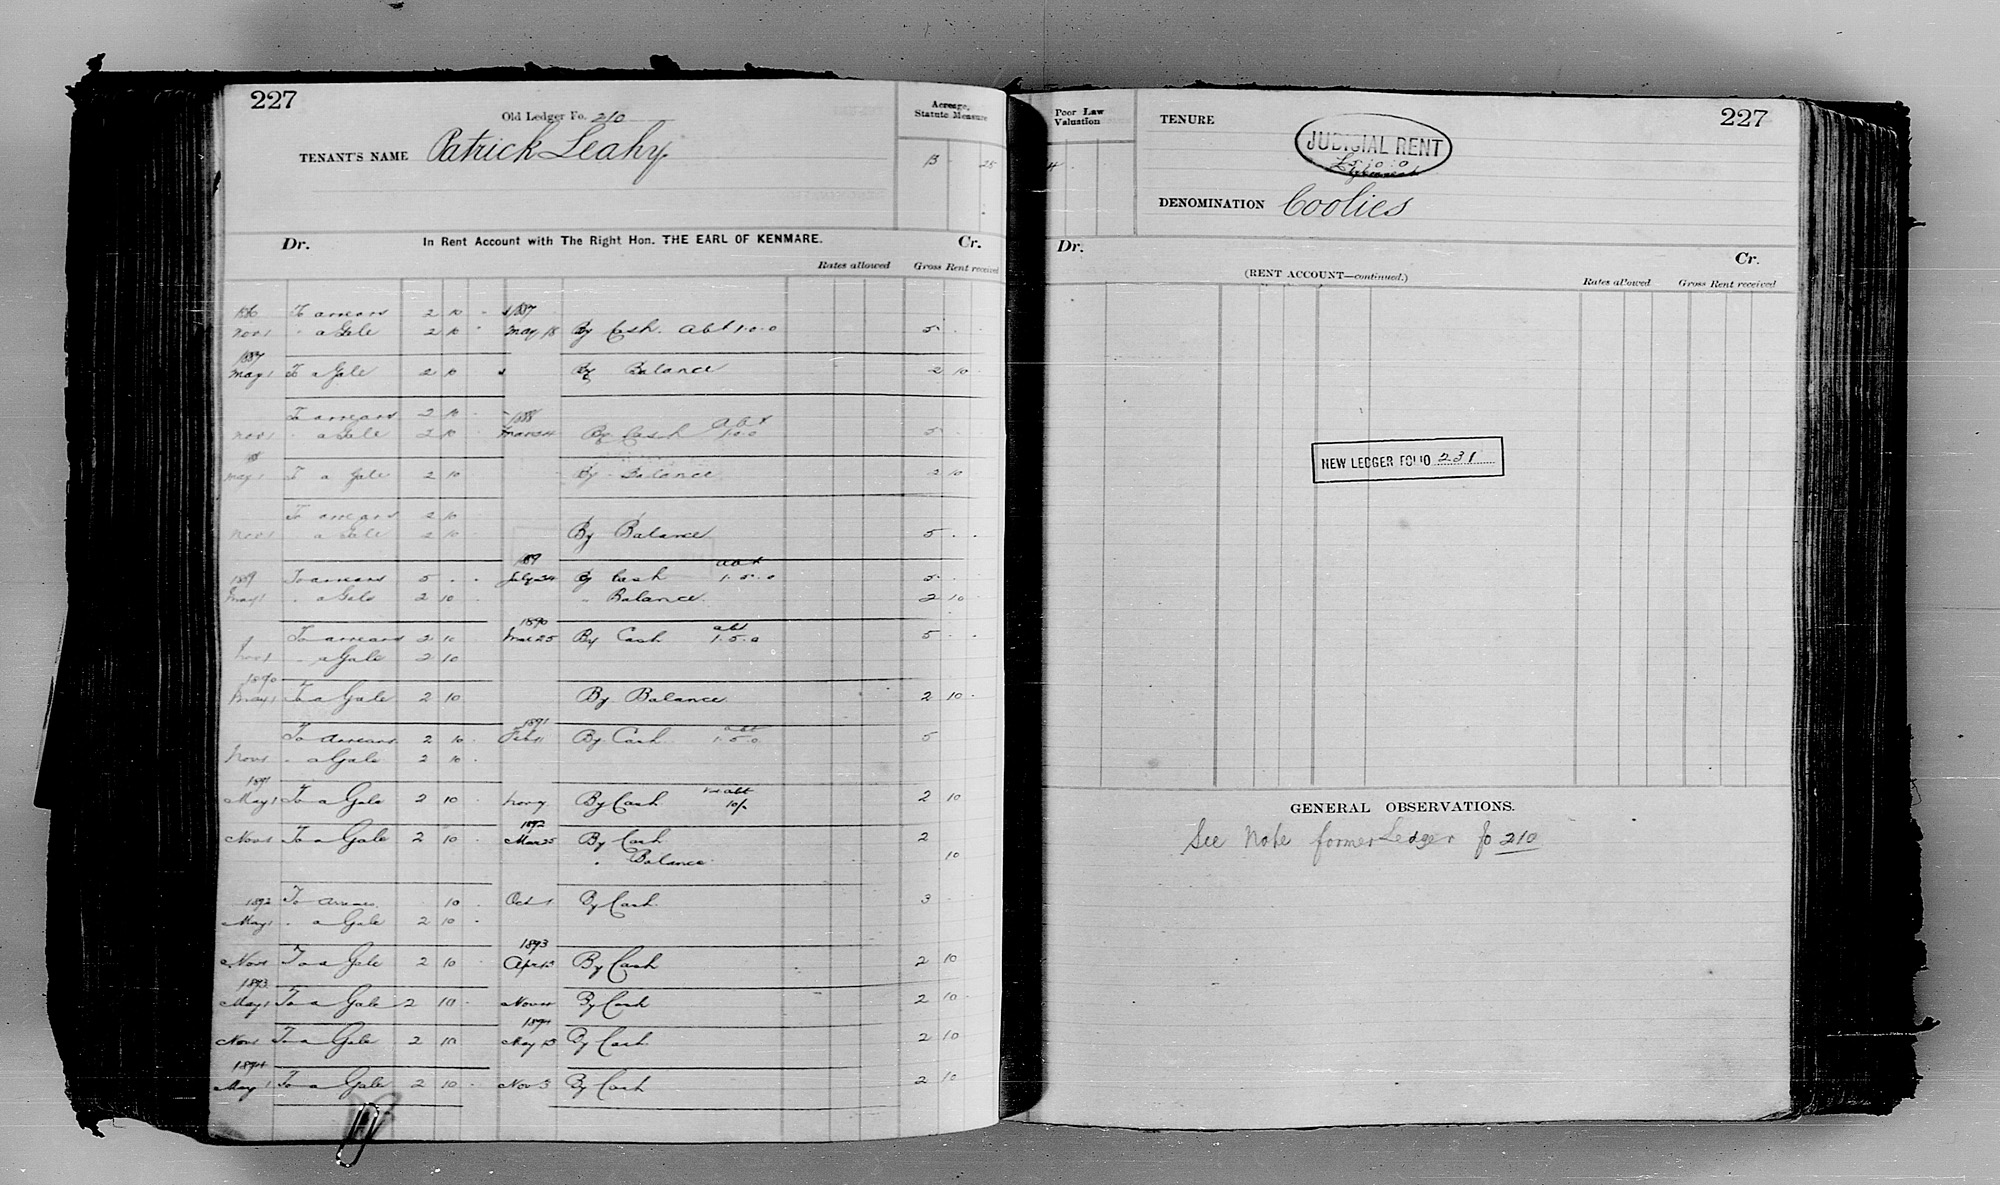 227
Old Ledger Fo. 210
TENANT'S NAME Patrick Leahy
Acreage, Statute Measure
13 . 25
Dr. In Rent Account with The Right Hon. THE EARL OF KENMARE. Cr.
Rates allowed Gross Rent received
To arrears 2 10 - 1887
Nov 1 " a Gale 2 10 " May 18 By Cash. abt 1.0.0 5 . .
1887
May 1 To a Gale 2 10 By Balance 2 10
To arrears 2 10 - 1888
Nov 1 " a Gale 2 10 - Mar 24 By Cash abt 1.0.0 5 . .
May 1 To a Gale 2 10 By Balance 2 10
To arrears 2 10
Nov 1 a Gale 2 10 By Balance 5 . .
1889
1889 To arrears 5 . . July 24 By Cash abt 1.5.0 5 .
May 1 " a Gale 2 10 " Balance 2 10
1890
To arrears 2 10 Mar 25 By Cash abt 1.5.0 5 . .
Nov 1 " a Gale 2 10
1890
May 1 To a Gale 2 10 By Balance 2 10 .
1891
To Arrears 2 10 . Feb By Cash abt 1.5.0 5
Nov 1 " a Gale 2 10 .
1891
May 1 To a Gale 2 10 . Nov By Cash abt 10/- 2 10
1892
Nov 1 To a Gale 2 10 . Mar 25 By Cash 2
" Balance 10
1892 To Arrears 10 . Oct 1 By Cash 3
May 1 " a Gale 2 10 .
1893
Nov 1 To a Gale 2 10 . Apr 13 By Cash 2 10
1893
May 1 To a Gale 2 10 . Nov By Cash 2 10
1894
Nov 1 To a Gale 2 10 May 13 By Cash 2 10
1894
May 1 To a Gale 2 10 . Nov 3 By Cash 2 10
Poor Law Valuation
4 .
TENURE
227
JUDICIAL RENT
£5.0.0
DENOMINATION Coolies
Dr. Cr.
(RENT ACCOUNT—continued.)
Rates allowed Gross Rent received
NEW LEDGER FOLIO 231
GENERAL OBSERVATIONS.
See Note former Ledger fo 210